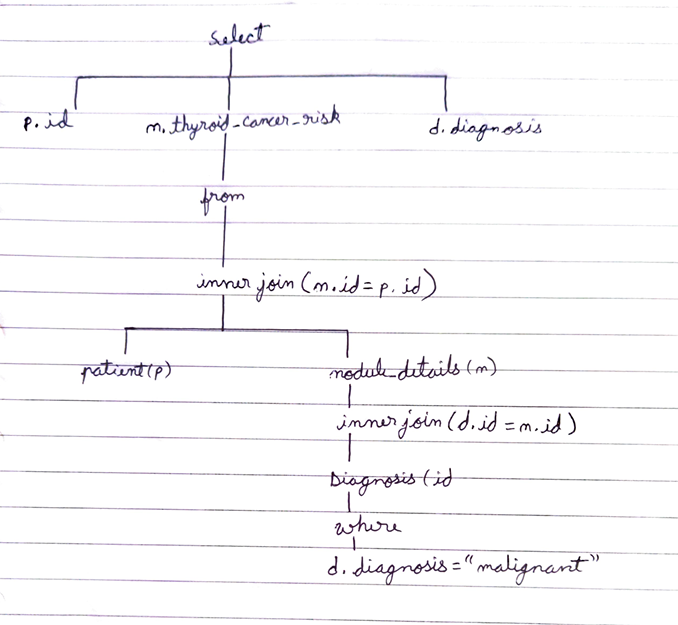 select
p.id m.thyroid_cancer_risk d.diagnosis
from
inner join (m.id = p.id)
patient(p) nodule_details(m)
inner join (d.id = m.id)
Diagnosis (id
where
d.diagnosis = "malignant"